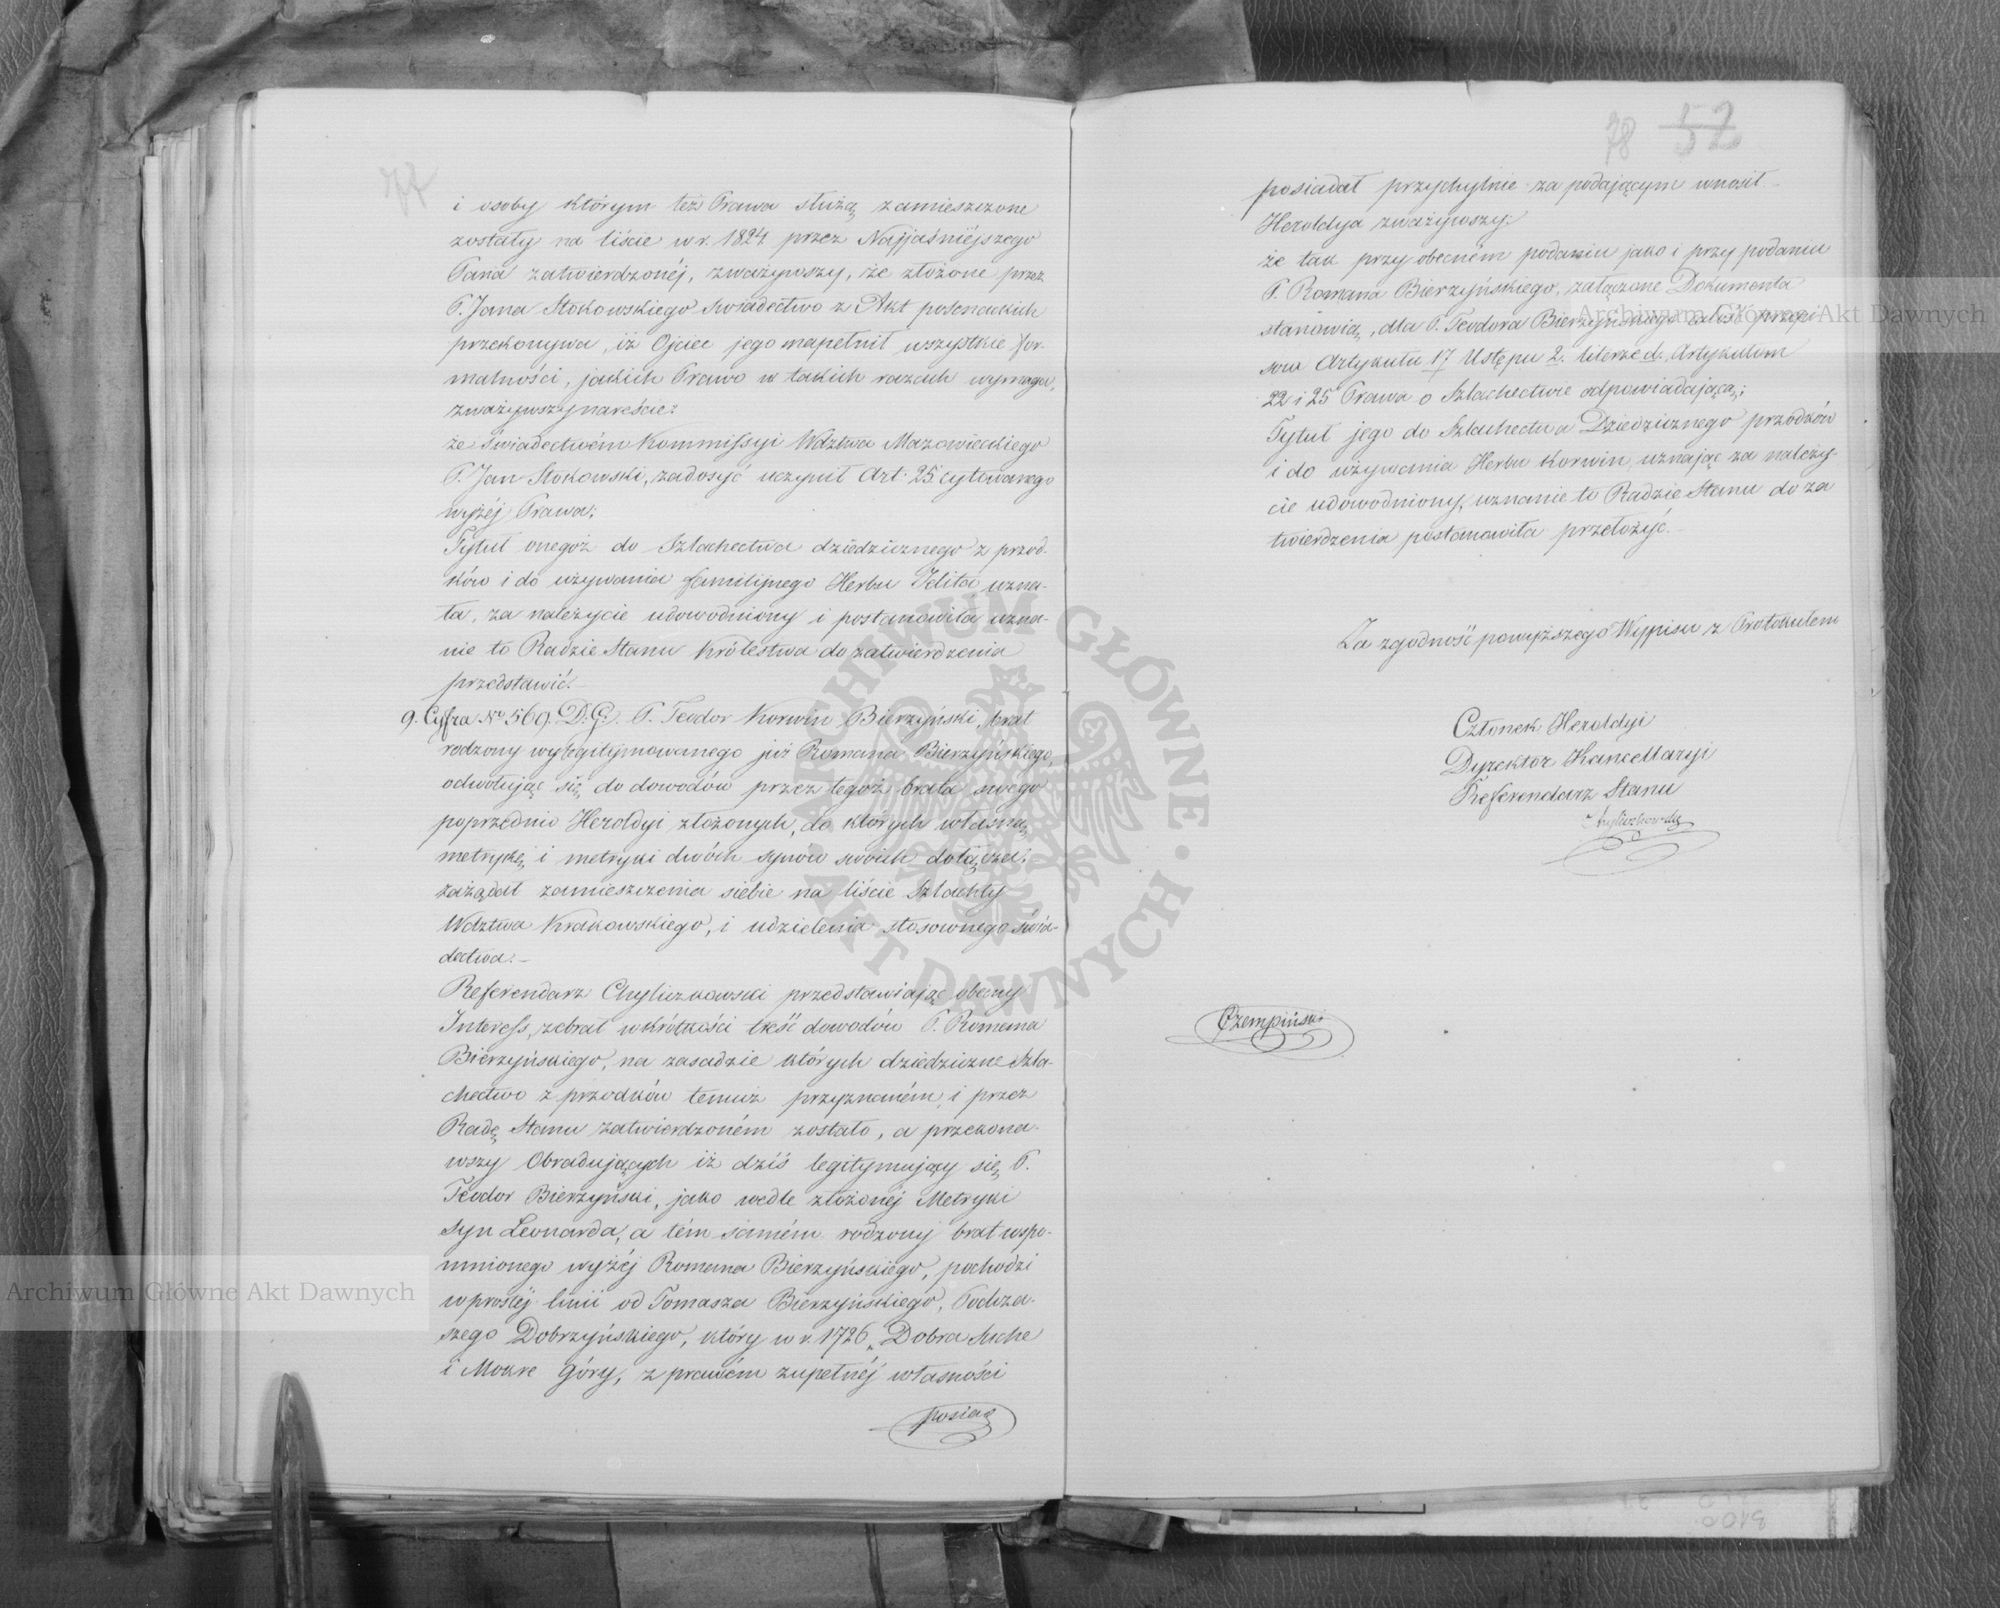 77
i osoby którym też Prawa służą, zamieszczone
zostały na liście w r. 1824 przez Najjaśniejszego
Pana zatwierdzonéj, zważywszy, że złożone przez
P. Jana Stokowskiego świadectwo z Akt
przekonywa, iż Ojciec jego napełnił wszystkie for-
malności, jakich Prawo w takich razach wymaga,
zważywszy nareście:
że świadectwém Kommissyi Wdztwa Mazowieckiego
P. Jan Stokowski, zadosyć uczynił Art: 25 cytowanego
wyżéj Prawa;
Tytuł onegoż do Szlachectwa dziedzicznego z przod-
ków i do używania familijnego Herbu Jelita, uzna-
ła, za należycie udowodniony i postanowiła uzna-
nie to Radzie Stanu Królestwa do zatwierdzenia
przedstawić.—
9. Cyfra No 569. D. G. P. Teodor Korwin Bierzyński, brat
rodzony wylegitymowanego już Romana Bierzyńskiego,
odwołując się, do dowodów przez tegoż brata swego
poprzednio Heroldyi złożonych, do których własną
metrykę, i metryki dwóch synów swoich dołączał;
zażądał zamieszczenia siebie na liście Szlachty
Wdztwa Krakowskiego, i udzielenia stosownego świa-
dectwa.—
Referendarz Chyliczkowski przedstawiając obecny
Interess, zebrał w krótkości treść dowodów P. Romana
Bierzyńskiego, na zasadzie których dziedziczne Szla-
chectwo z przodków temuż przyznaném, i przez
Radę Stanu zatwierdzoném zostało, a przekona-
wszy Obradujących iż dziś legitymujący się, P.
Teodor Bierzyński, jako wedle złożonéj Metryki
syn Leonarda, a tém samém rodzony brat wspo-
mnionego wyżéj Romana Bierzyńskiego, pochodzi
w prostéj linii od Tomasza Bierzyńskiego, Podcza-
szego Dobrzyńskiego, który w r. 1726 Dobra Suche
i Mokre Góry, z prawém zupełnéj własności
posiad
78 52
posiadał przychylnie za podającym wnosił—
Heroldya zważywszy:
że tak przy obecném podaniu jako i przy podaniu
P. Romana Bierzyńskiego, załączone Dokumenta
stanowią, dla P. Teodora Bierzyńskiego całość przepi-
sów Artykułu 17 Ustępu 2. literze d. Artykułom
22 i 25 Prawa o Szlachectwie odpowiadającą;
Tytuł jego do Szlachectwa Dziedzicznego przodków
i do używania Herbu Korwin, uznając za należy-
cie udowodniony, uznanie to Radzie Stanu do za
twierdzenia postanowiła przełożyć.—
Za zgodność powyższego Wypisu z Protokułem
Członek Heroldyi
Dyrektor Kancellaryi
Referendarz Stanu
Chyliczkowski
Czempiński
Archiwum Główne Akt Dawnych
Archiwum Główne Akt Dawnych
ARCHIWUM GŁÓWNE · AKT DAWNYCH ·
3100